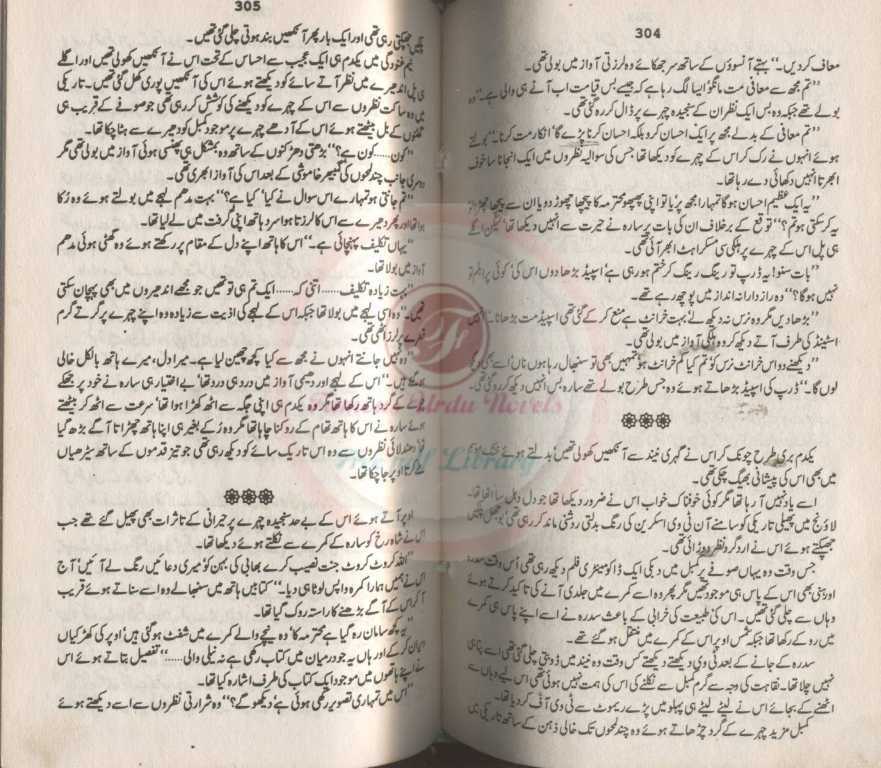 304
معاف کردیں۔‘‘ بہتے آنسوؤں کے ساتھ سر جھکائے وہ لرزتی آواز میں بولی تھی۔
’’تم مجھ سے معافی مت مانگو‘ ایسا لگ رہا ہے کہ جیسے بس قیامت اب آنے ہی والی ہے۔‘‘ وہ
بولے تھے جبکہ وہ بس ایک نظر ان کے سنجیدہ چہرے پر ڈال کر رہ گئی تھی۔
’’تم معافی کے بدلے مجھ پر ایک احسان کرو بلکہ احسان کرنا پڑے گا‘ انکار مت کرنا۔‘‘ بولتے
ہوئے انہوں نے رک کر اس کے چہرے کو دیکھا تھا جس کی سوالیہ نظروں میں ایک انجانا سا خوف
ابھرتا انہیں دکھائی دے رہا تھا۔
’’یہ ایک عظیم احسان ہوگا تمہارا مجھ پر‘ یا تو اپنی پھپو محترمہ کا پیچھا چھوڑ دو یا ان سے پیچھا چھڑاؤ
یہ کرسکتی ہو تم؟‘‘ توقع کے برخلاف ان کی بات پر سارہ نے حیرت سے انہیں دیکھا تھا‘ لیکن اگلے
ہی پل اس کے چہرے پر ہلکی سی مسکراہٹ ابھر آئی تھی۔
’’بات سنو! یہ ڈرپ تو رینگ رینگ کر ختم ہو رہی ہے‘ اسپیڈ بڑھا دوں اس کی‘ کوئی پرابلم تو
نہیں ہوگا؟‘‘ وہ رازدارانہ انداز میں پوچھ رہے تھے۔
’’بڑھا دیں مگر وہ نرس نہ دیکھ لے‘ بہت خرانٹ ہے‘ منع کرکے گئی تھی اسپیڈ مت بڑھانا۔‘‘
اسٹینڈ کی طرف آتے دیکھ کر وہ ہلکی آواز میں بولی تھی۔
’’دیکھنے دو اس خرانٹ نرس کو‘ تم کیا کم خرانٹ ہو‘ تمہیں بھی تو سنبھال رہا ہوں ناں‘ اسے بھی دیکھ
لوں گا۔‘‘ ڈرپ کی اسپیڈ بڑھاتے ہوئے وہ جس طرح بولے تھے سارہ بس انہیں دیکھ کر رہ گئی تھی۔
یکدم بری طرح چونک کر اس نے گہری نیند سے آنکھیں کھولی تھیں‘ بدلتے ہوئے خنک موسم
میں بھی اس کی پیشانی بھیگ چکی تھی۔
اسے یاد نہیں آ رہا تھا مگر کوئی خوفناک خواب اس نے ضرور دیکھا تھا جو دل دہل سا اٹھا تھا۔
لاؤنج میں پھیلی تاریکی کو سامنے آن ٹی وی اسکرین کی رنگ بدلتی روشنی ماند کر رہی تھی‘ بوجھل پلکیں
جھپکتے ہوئے اس نے اردگرد نظر دوڑائی تھی۔
جس وقت وہ یہاں صوفے پر کمبل میں دبکی ایک ڈاکومینٹری فلم دیکھ رہی تھی‘ اس وقت سدرہ
اور بنی بھی اس کے پاس ہی موجود تھیں مگر پھر وہ اسے کمرے میں جلدی آنے کی تاکید کرتے ہوئے
وہاں سے چلی گئی تھیں۔ اس کی طبیعت کی خرابی کے باعث سدرہ نے اسے اپنے پاس ہی کمرے
میں روکے رکھا تھا جبکہ شمس اوپر اس کے کمرے میں منتقل ہوگئے تھے۔
سدرہ کے جانے کے بعد ٹی وی دیکھتے دیکھتے کس وقت وہ نیند میں ڈوبتی چلی گئی تھی اسے پتا ہی
نہیں چلا تھا۔ نقاہت کی وجہ سے گرم کمبل سے نکلنے کی اس کی ہمت نہیں ہوئی تھی اس لیے وہاں سے
اٹھنے کے بجائے اس نے لیٹے لیٹے ہی پہلو میں پڑے ریموٹ سے ٹی وی آف کر دیا تھا۔
کمبل مزید چہرے کے گرد چڑھاتے ہوئے وہ چند لمحوں تک خالی ذہن کے ساتھ تاریکی میں
305
پلکیں جھپکتی رہی تھی اور ایک بار پھر آنکھیں بند ہوتی چلی گئی تھیں۔
نیم غنودگی میں یکدم ہی ایک عجیب سے احساس کے تحت اس نے آنکھیں کھولی تھیں اور اگلے
ہی پل اندھیرے میں نظر آتے سائے کو دیکھتے ہوئے اس کی آنکھیں پوری کھل گئی تھیں۔ تاریکی
میں وہ ساکت نظروں سے اس کے چہرے کو دیکھنے کی کوشش کر رہی تھی جو صوفے کے قریب ہی
گھٹنوں کے بل بیٹھتے ہوئے اس کے آدھے چہرے پر موجود کمبل کو دھیرے سے ہٹا چکا تھا۔
’’کون.....کون ہے؟‘‘ بڑھتی دھڑکنوں کے ساتھ وہ بمشکل ہی پھنسی ہوئی آواز میں بولی تھی مگر
دوسری جانب چند لمحوں کی گمبھیر خاموشی کے بعد اس کی آواز ابھری تھی۔
’’تم جانتی ہو تمہارے اس سوال نے کیا‘ کیا ہے؟‘‘ بہت مدھم لہجے میں بولتے ہوئے وہ رکا
ہوا تھا اور پھر دھیرے سے اس کا لرزتا ہوا سرد ہاتھ اپنی گرفت میں لے لیا تھا۔
’’یہاں تکلیف پہنچائی ہے۔‘‘ اس کا ہاتھ اپنے دل کے مقام پر رکھتے ہوئے وہ گھٹی ہوئی مدھم
آواز میں بولا تھا۔
’’بہت زیادہ تکلیف.....اتنی کہ.....ایک تم ہی تو تھیں جو مجھے اندھیروں میں بھی پہچان سکتی
تھیں۔‘‘ وہ اسی لہجے میں بولا تھا جبکہ اس کے لہجے کی اذیت سے زیادہ وہ اپنے چہرے پر گرتے گرم
قطرے پر لرز اٹھی تھی۔
’’وہ نہیں جانتے انہوں نے مجھ سے کیا کچھ چھین لیا ہے۔ میرا دل‘ میرے ہاتھ بالکل خالی
ہوگئے ہیں۔‘‘ اس کے لہجے اور دھیمی آواز میں درد ہی درد تھا‘ بے اختیار ہی سارہ نے خود پر جھکے
کے گرد ہاتھ رکھا تھا مگر وہ یکدم ہی اپنی جگہ سے اٹھ کھڑا ہوا تھا‘ سرعت سے اٹھ کر بیٹھتے
ہوئے سارہ نے اس کا ہاتھ تھام کے روکنا چاہا تھا مگر وہ رکے بغیر ہی اپنا ہاتھ چھڑاتا آگے بڑھ گیا
تھا‘ دھندلائی نظروں سے وہ اس تاریک سائے کو دیکھ رہی تھی جو تیز قدموں کے ساتھ سیڑھیاں
طے کرتا اوپر جا چکا تھا۔
اوپر آتے ہوئے اس کے بے حد سنجیدہ چہرے پر حیرانی کے تاثرات بھی پھیل گئے تھے جب
اس نے شاہ رخ کو سارہ کے کمرے سے نکلتے ہوئے دیکھا تھا۔
’’اللہ کروٹ کروٹ جنت نصیب کرے بھابی کی بہن کو‘ میری دعائیں رنگ لے آئیں‘ آج
اس نے ہمیں ہمارا کمرہ واپس لوٹا ہی دیا۔‘‘ کتابیں ہاتھ میں سنبھالے وہ اسے سناتے ہوئے قریب
آکر اس کے آگے بڑھنے کا راستہ روک گیا تھا۔
’’یہ کچھ سامان رہ گیا ہے محترمہ کا‘ وہ نیچے والے کمرے میں شفٹ ہوگئی ہیں‘ اوپر کی کھڑکیاں
کر کے اور ہاں یہ جو درمیان میں کتاب رکھی ہے نہ نیلی والی.....‘‘ تفصیل بتاتے ہوئے اس
نے اپنے ہاتھوں میں موجود ایک کتاب کی طرف اشارہ کیا تھا۔
’’اس میں تمہاری تصویر رکھی ہوئی ہے‘ دیکھو گے؟‘‘ وہ شرارتی نظروں سے اسے دیکھتے ہوئے
Urdu Novels
Library